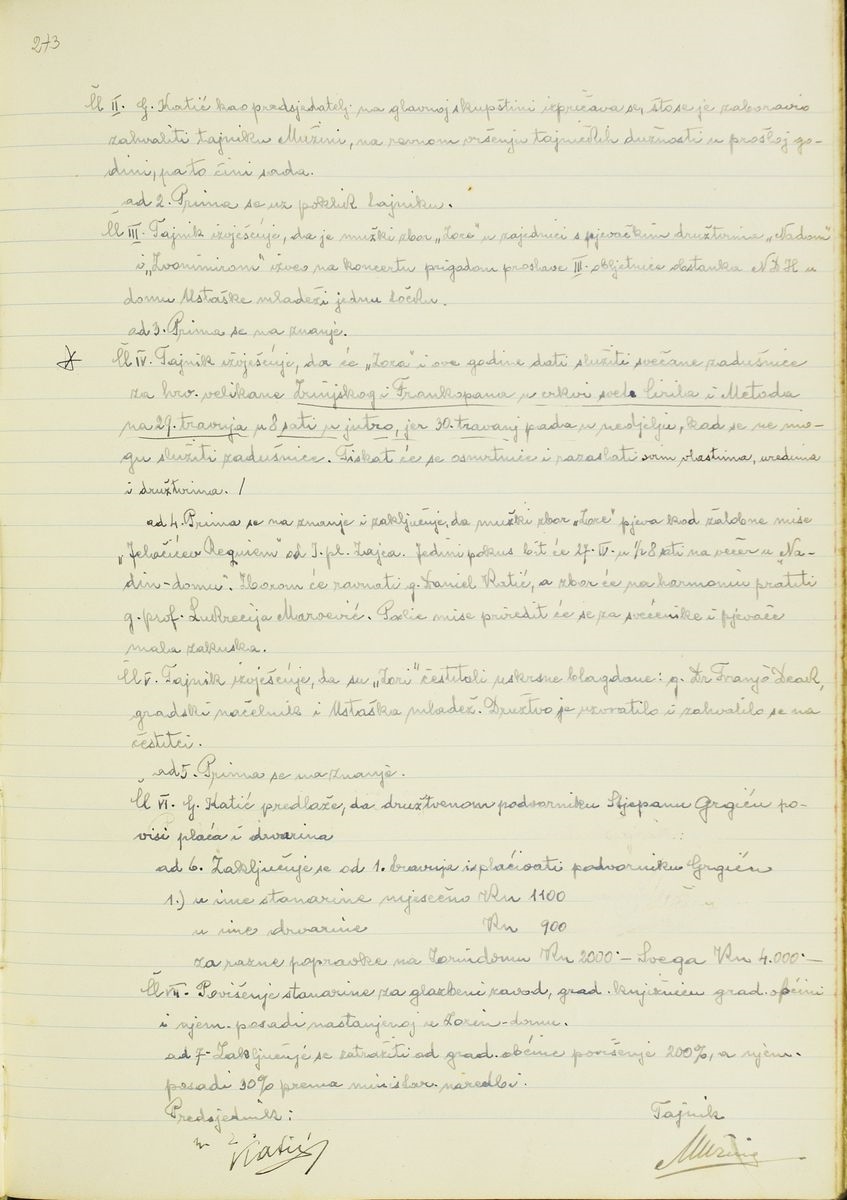 273
Čl II. G. Katić kao predsjedatelj na glavnoj skupštini izpričava se, što se je zaboravio
zahvaliti tajniku Mužini, na revnom vršenju tajničkih dužnosti u prošloj go-
dini, pa to čini sada.
ad 2. Prima se uz poklik tajniku.
Čl III. Tajnik izvješćuje, da je mužki zbor „Zore" u zajednici s pjevačkim družtvima „Nadom"
i „Zvonimirom" izveo na koncertu prigodom proslave III. obljetnice obstanka NDH u
domu Ustaške mladeži jednu točku.
ad 3. Prima se na znanje.
Čl IV. Tajnik izvješćuje, da će „Zora" i ove godine dati služiti svečane zadušnice
za hrv. velikane Zrinjskog i Frankopana u crkvi sveta Cirila i Metoda
na 29. travnja u 8 sati u jutro, jer 30. travanj pada u nedjelju, kad se ne mo-
gu služiti zadušnice. Tiskat će se osmrtnice i razaslati svim vlastima, uredima
i družtvima. /
ad 4. Prima se na znanje i zaključuje, da mužki zbor „Zore" pjeva kod žalobne mise
„Jelačićev Requiem" od I. pl. Zajca. Jedini pokus bit će 27. IV. u ½ 8 sati na večer u „Na-
din-domu". Zborom će ravnati g. Daniel Katić, a zbor će na harmoniu pratiti
g. prof. Lukrecija Maroević. Poslie mise priredit će se za svećenike i pjevače
mala zakuska.
Čl V. Tajnik izvješćuje, da su „Zori" čestitali uskrsne blagdane: g. Dr Franjo Deak,
gradski načelnik i Ustaška mladež. Družtvo je uzvratilo i zahvalilo se na
čestitci.
ad 5. Prima se na znanje.
Čl VI. G. Katić predlaže, da družtvenom podvorniku Stjepanu Grgiću po-
visi plaća i drvarina
ad 6. Zaključuje se od 1. travnja isplaćivati podvorniku Grgiću
1.) u ime stanarine mjesečno Kn 1100
u ime drvarine Kn 900
za razne popravke na Zorindomu Kn 2000·— Svega Kn 4.000·—
Čl VII. Povišenje stanarine za glazbeni zavod, grad. knjižnicu grad. občini
i njem. posadi nastanjenoj u Zorin-domu.
ad 7- Zaključuje se zatražiti od grad. občine povišenje 200%, a njem.
posadi 30% prema ministar. naredbi.
Predsjednik: Tajnik
Katić Mužina